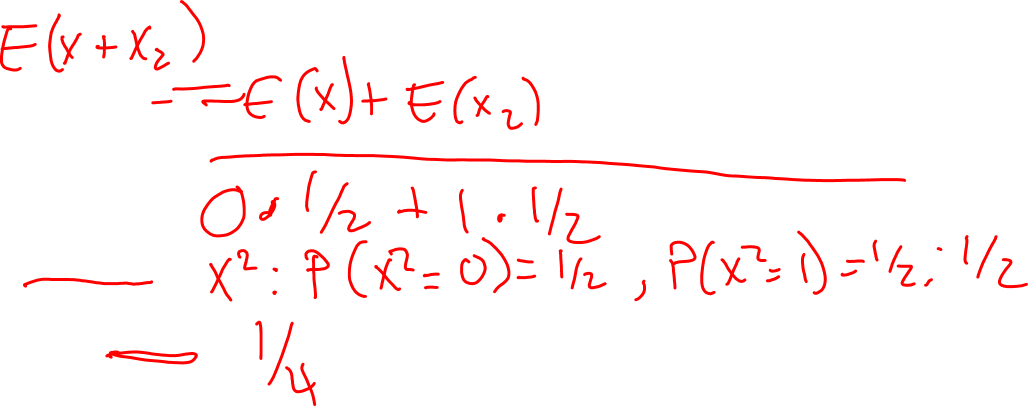 E(x+x₂)
= E(x) + E(x₂)
0 · 1/2 + 1 · 1/2
x² : P(x² = 0) = 1/2 , P(x² = 1) = 1/2 : 1/2
1/4